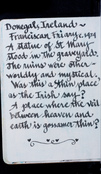 Donegal, Ireland ~
Franciscan Friary, 1474
A statue of St. Mary
stood in the graveyard.
The ruins were other-
worldly and mystical.
Was this a thin place
as the Irish say?
A place where the veil
between heaven and
earth is gossamer thin?